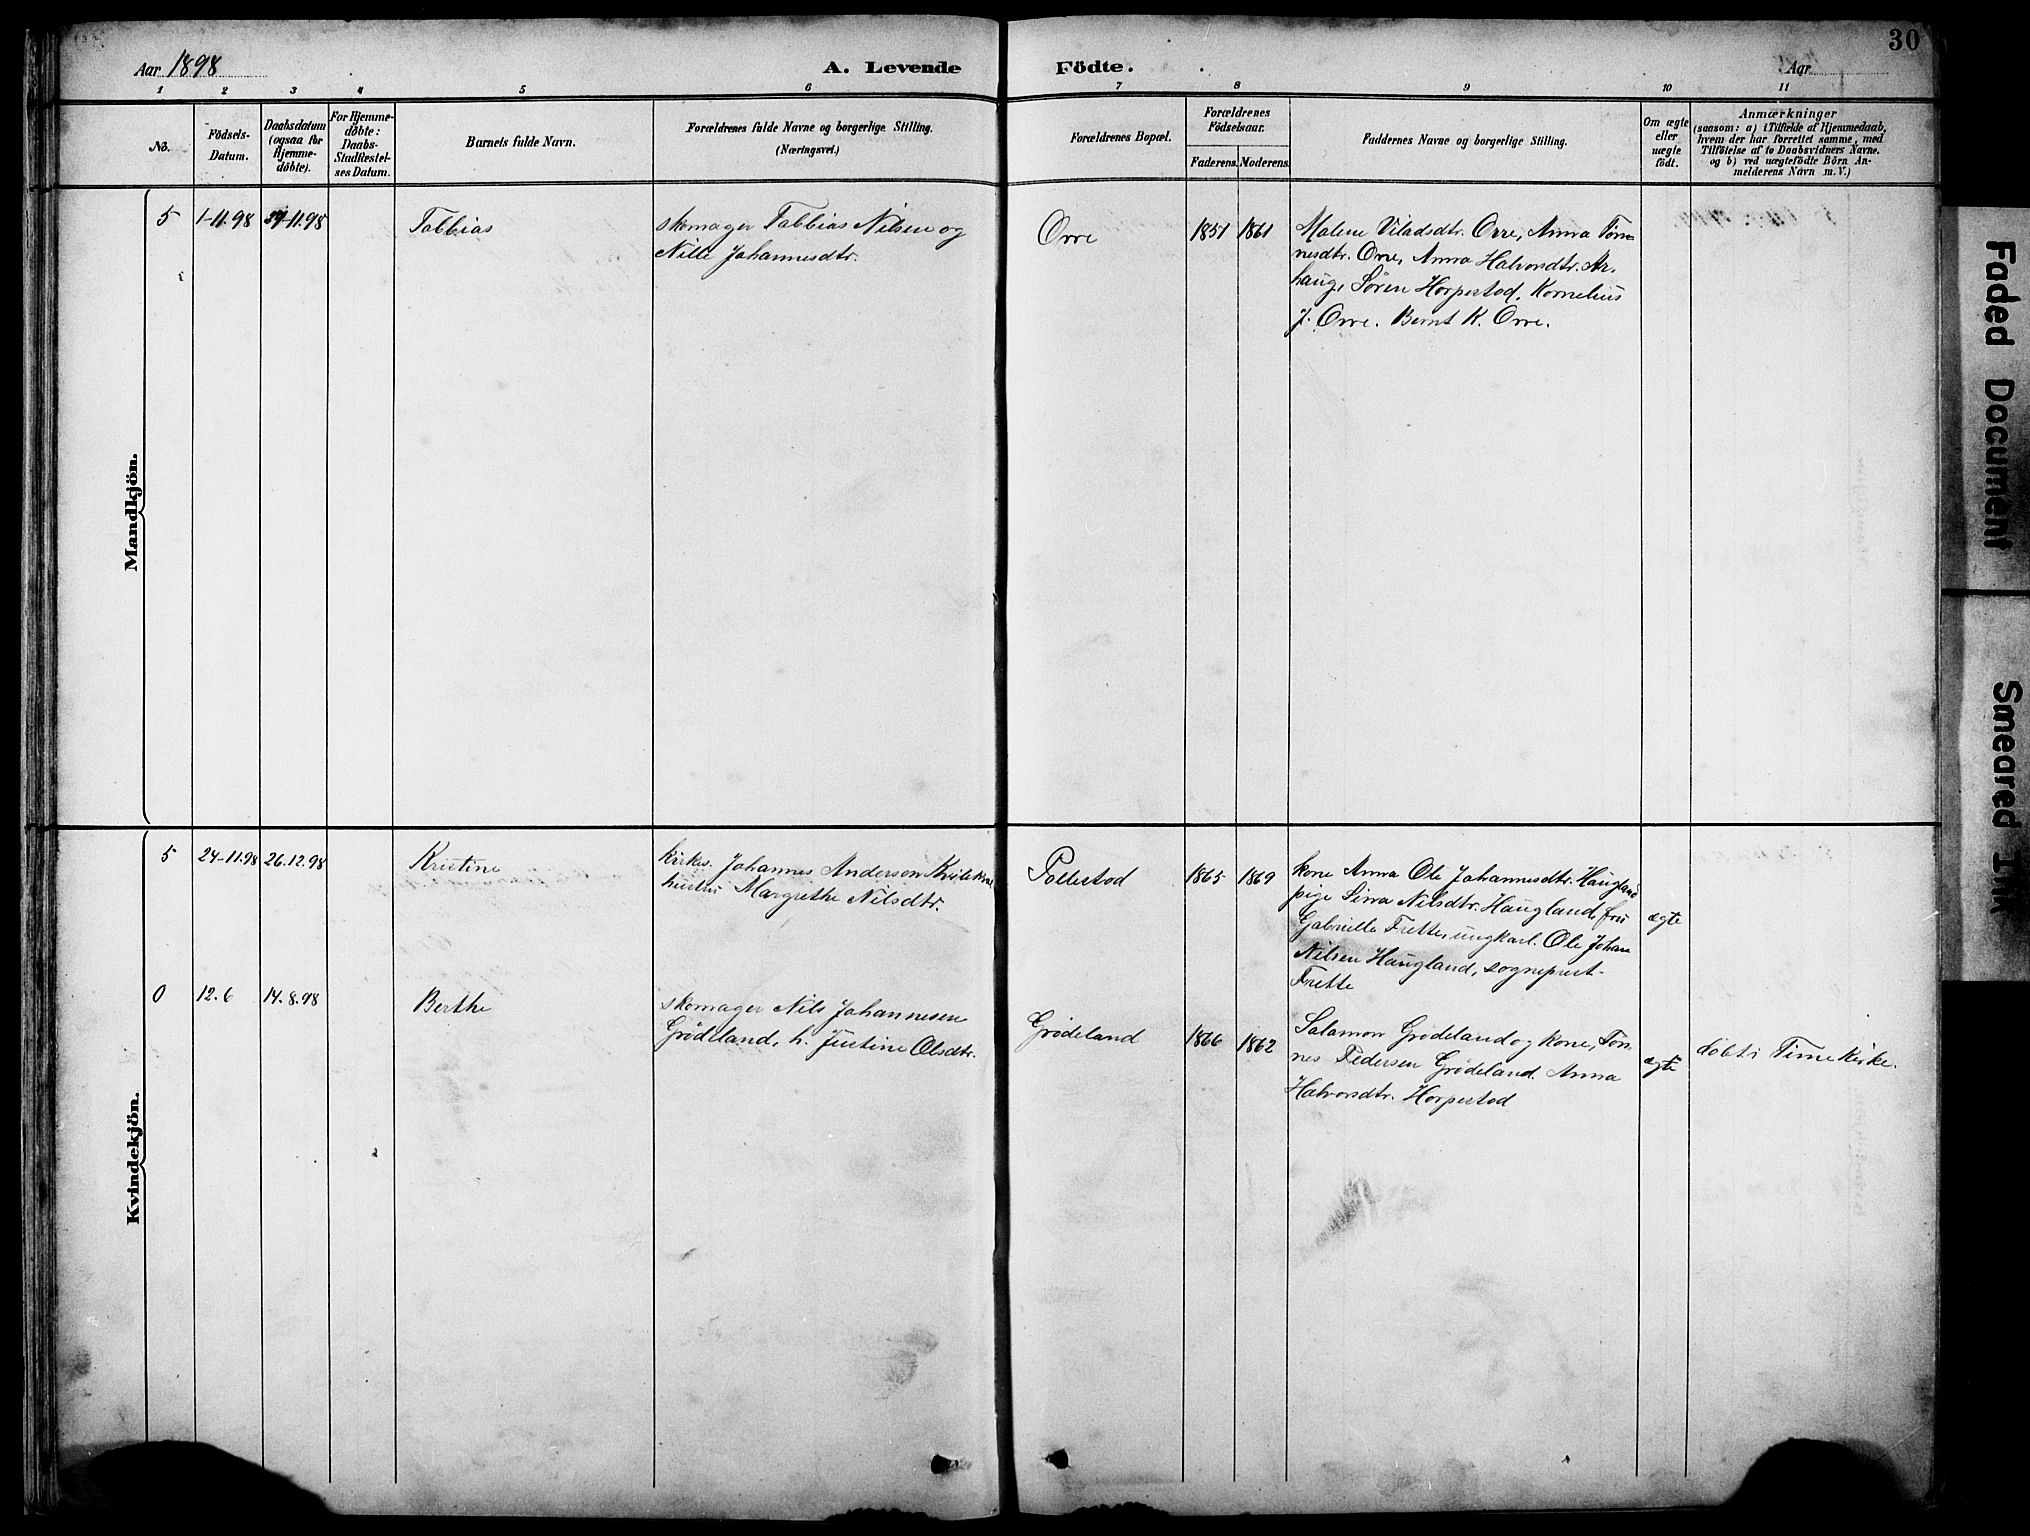 30
Aar 1898
A. Levende
Födte.
Aar
1 2 3 4 5 6 7 8 9 10 11
No.
Födsels-
Datum.
Daabsdatum
(ogsaa for
Hjemme-
døbte).
For Hjemme-
døbte:
Daabs-
Stadfæstel-
ses Datum.
Barnets fulde Navn.
Forældrenes fulde Navne og borgerlige Stilling.
(Næringsvei.)
Forældrenes Bopæl.
Forældrenes
Födselsaar.
Faderens. Moderens.
Faddernes Navne og borgerlige Stilling.
Om ægte
eller
uægte
født.
Anmærkninger
(saasom: a) i Tilfælde af Hjemmedaab,
hvem der har forrettet samme, med
Tilföielse af to Daabsvidners Navne.
og b) ved uægtefödte Börn An-
melderens Navn m. V.)
Mandkjön.
5 1-11.98 -11.98 Tobbias
skomager Tobbias Nilsen og
Nille Johannesdtr.
Orre
1851 1861
Malene Viladsdtr. Orre, Anna Tøn-
nesdtr. Orre, Anna Halvorsdtr. Ar-
haug, Sören Horpestad, Kornelius
J. Orre. Bernt K. Orre.
Kvindekjön.
5 24-11.98 26.12.98 Kristine
kirkes. Johannes Anderson
hustru Margrethe Nilsdtr.
Pollestad
1865 1869
kone Anna Ole Johannesdtr. Haugland
pige Sina Nilsdtr. Haugland, fru
Gabrielle Frette, ungkarl. Ole Johan
Nilsen Haugland, sogneprest
Frette
ægte
0 12.6 14.8.98 Berthe
skomager Nils Johannesen
Grödeland, h. Justine Olsdtr.
Grødeland
1866 1862
Salamon Grødeland og kone, Tøn-
nes Pedersen Grødeland. Anna
Halvorsdtr. Horpestad
ægte
døbt i Time Kirke.
Faded Document
Smeared Ink